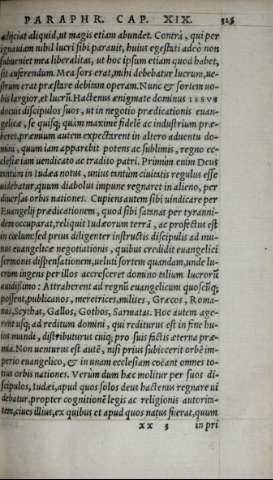 PARAPHR. CAP. XIX. 325
adijciat aliquid, ut magis etiam abundet. Contrà, qui per
ignauiam nihil lucri sibi parauit, huius egestati adeò non
subueniet mea liberalitas, ut hoc ipsum etiam quod habet,
sit auferendum. Mea sors erat, mihi debebatur lucrum, ue-
strum erat præstare debitum operam. Nunc & sortem uo-
bis largior, et lucrũ. Hactenus ænigmate dominus IESVS
docuit discipulos suos, ut in negotio prædicationis euan-
gelicæ, se quisq; quàm maximè fidelẽ ac industrium præ-
beret, præmium autem expectarent in altero aduentu do-
mini, quum iam apparebit potens ac sublimis, regno ec-
clesiæ iam uendicato ac tradito patri. Primùm enim Deus
tantùm in Iudæa notus, unius tantùm ciuitatis regulus esse
uidebatur, quum diabolus impune regnaret in alieno, per
diuersas orbis nationes. Cupiens autem sibi uindicare per
Euangelij prædicationem, quod sibi satanas per tyranni-
dem occuparat, reliquit Iudæorum terrã, ac profectus est
in cœlum: sed prius diligenter instructis discipulis ad mu-
nus euangelicæ negotiationis, quibus credidit euangelici
sermonis dispensationem, ueluti sortem quandam, unde lu-
crum ingens per illos accresceret domino talium lucrorũ
auidissimo: Attraherent ad regnũ euangelicum quoscũq;
possent, publicanos, meretrices, milites, Græcos, Roma-
nos, Scythas, Gallos, Gothos, Sarmatas. Hoc autem age-
rent usq; ad reditum domini, qui rediturus est in fine hu-
ius mundi, distributurus cuiq; pro suis factis æterna præ-
mia. Non uenturus est autẽ, nisi prius subiecerit orbẽ im-
perio euangelico, & in unam ecclesiam coëant omnes to-
tius orbis nationes. Verùm dum hæc molitur per suos di-
scipulos, Iudæi, apud quos solos deus hactenus regnare ui
debatur, propter cognitionẽ legis ac religionis autorita-
tem, ciues illius, ex quibus et apud quos natus fuerat, quum
xx 3 in pri